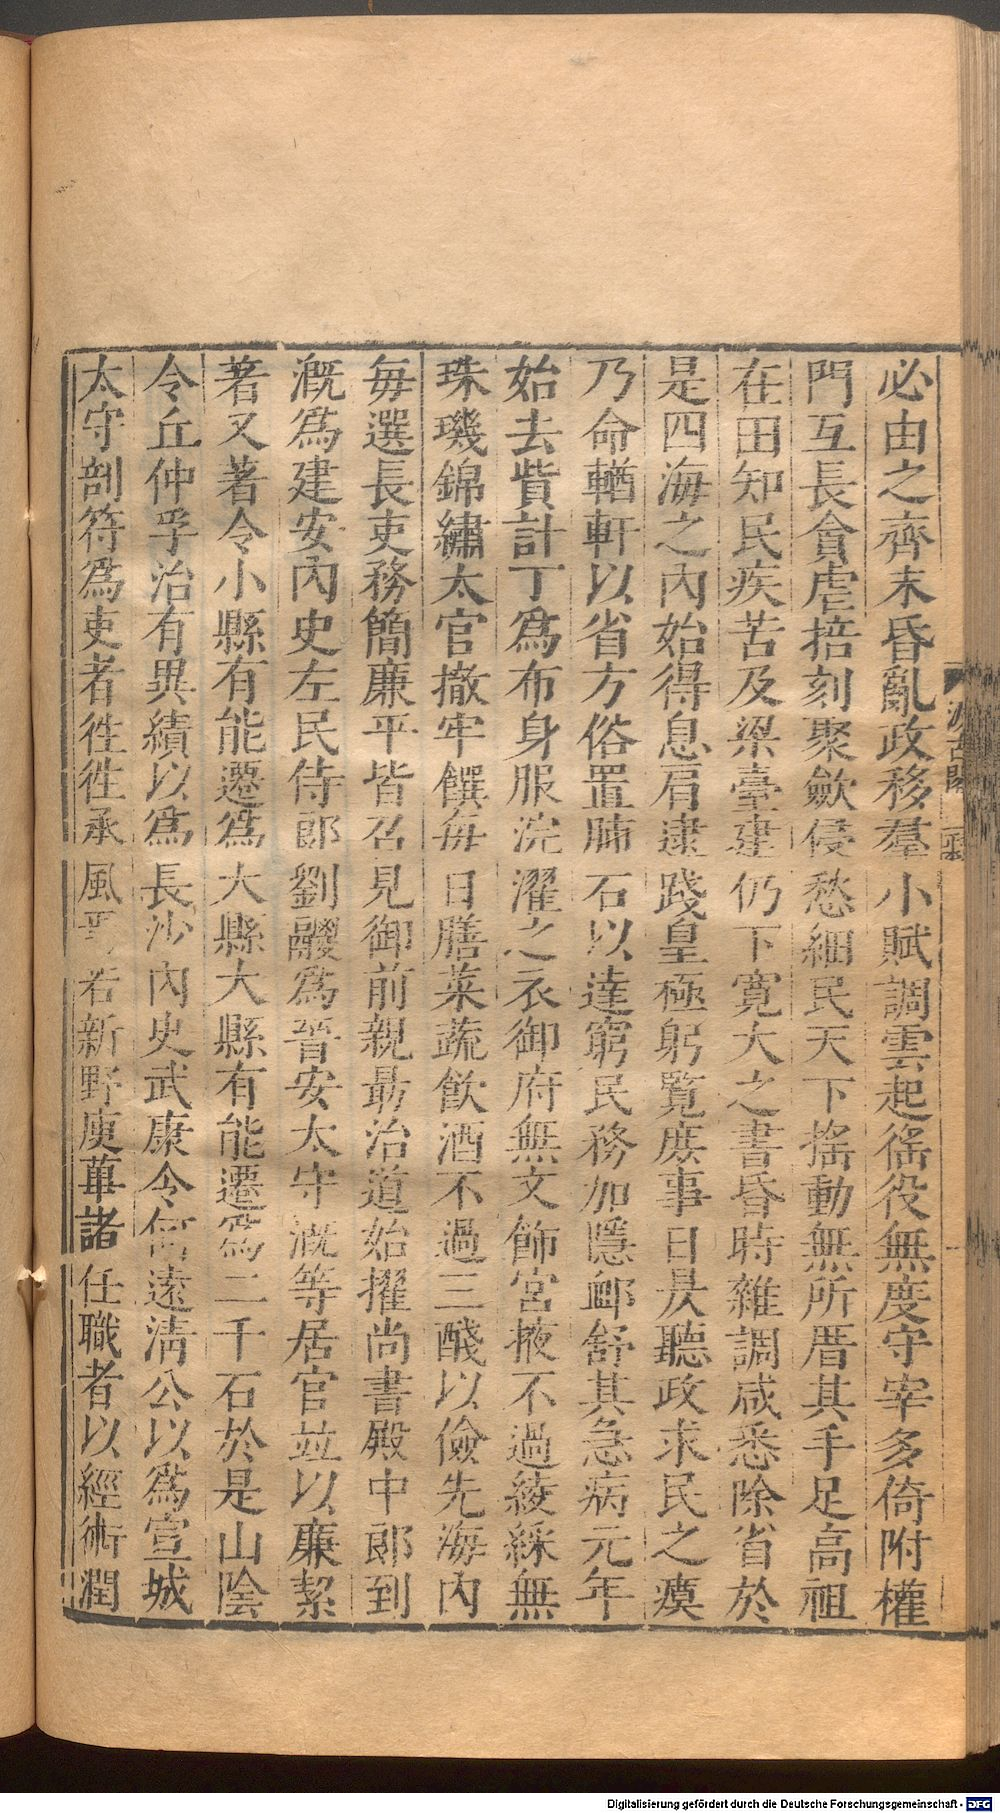 必由之齊末昏亂政移羣小賦調雲起徭役無度守宰多倚附權
門互長貪虐掊刻聚歛侵愁細民天下搖動無所厝其手足高祖
在田知民疾苦及梁臺建仍下寬大之書昏時雜調咸悉除省於
是四海之內始得息肩逮踐皇極躬覽庶事日昃聽政求民之瘼
乃命輶軒以省方俗置肺石以達窮民務加隱卹舒其急病元年
始去貲計丁爲布身服浣濯之衣御府無文飾宮掖不過綾綵無
珠璣錦繡太官撤牢饌每日膳菜蔬飲酒不過三醆以儉先海內
每選長吏務簡廉平皆召見御前親勗治道始擢尚書殿中郎到
溉爲建安內史左民侍郎劉鬷爲晉安太守溉等居官竝以廉絜
著又著令小縣有能遷爲大縣大縣有能遷爲二千石於是山陰
令丘仲孚治有異績以爲長沙內史武康令何遠淸公以爲宣城
太守剖符爲吏者徃徃承風焉若新野庾蓽諸任職者以經術潤
Digitalisierung gefördert durch die Deutsche Forschungsgemeinschaft - DFG